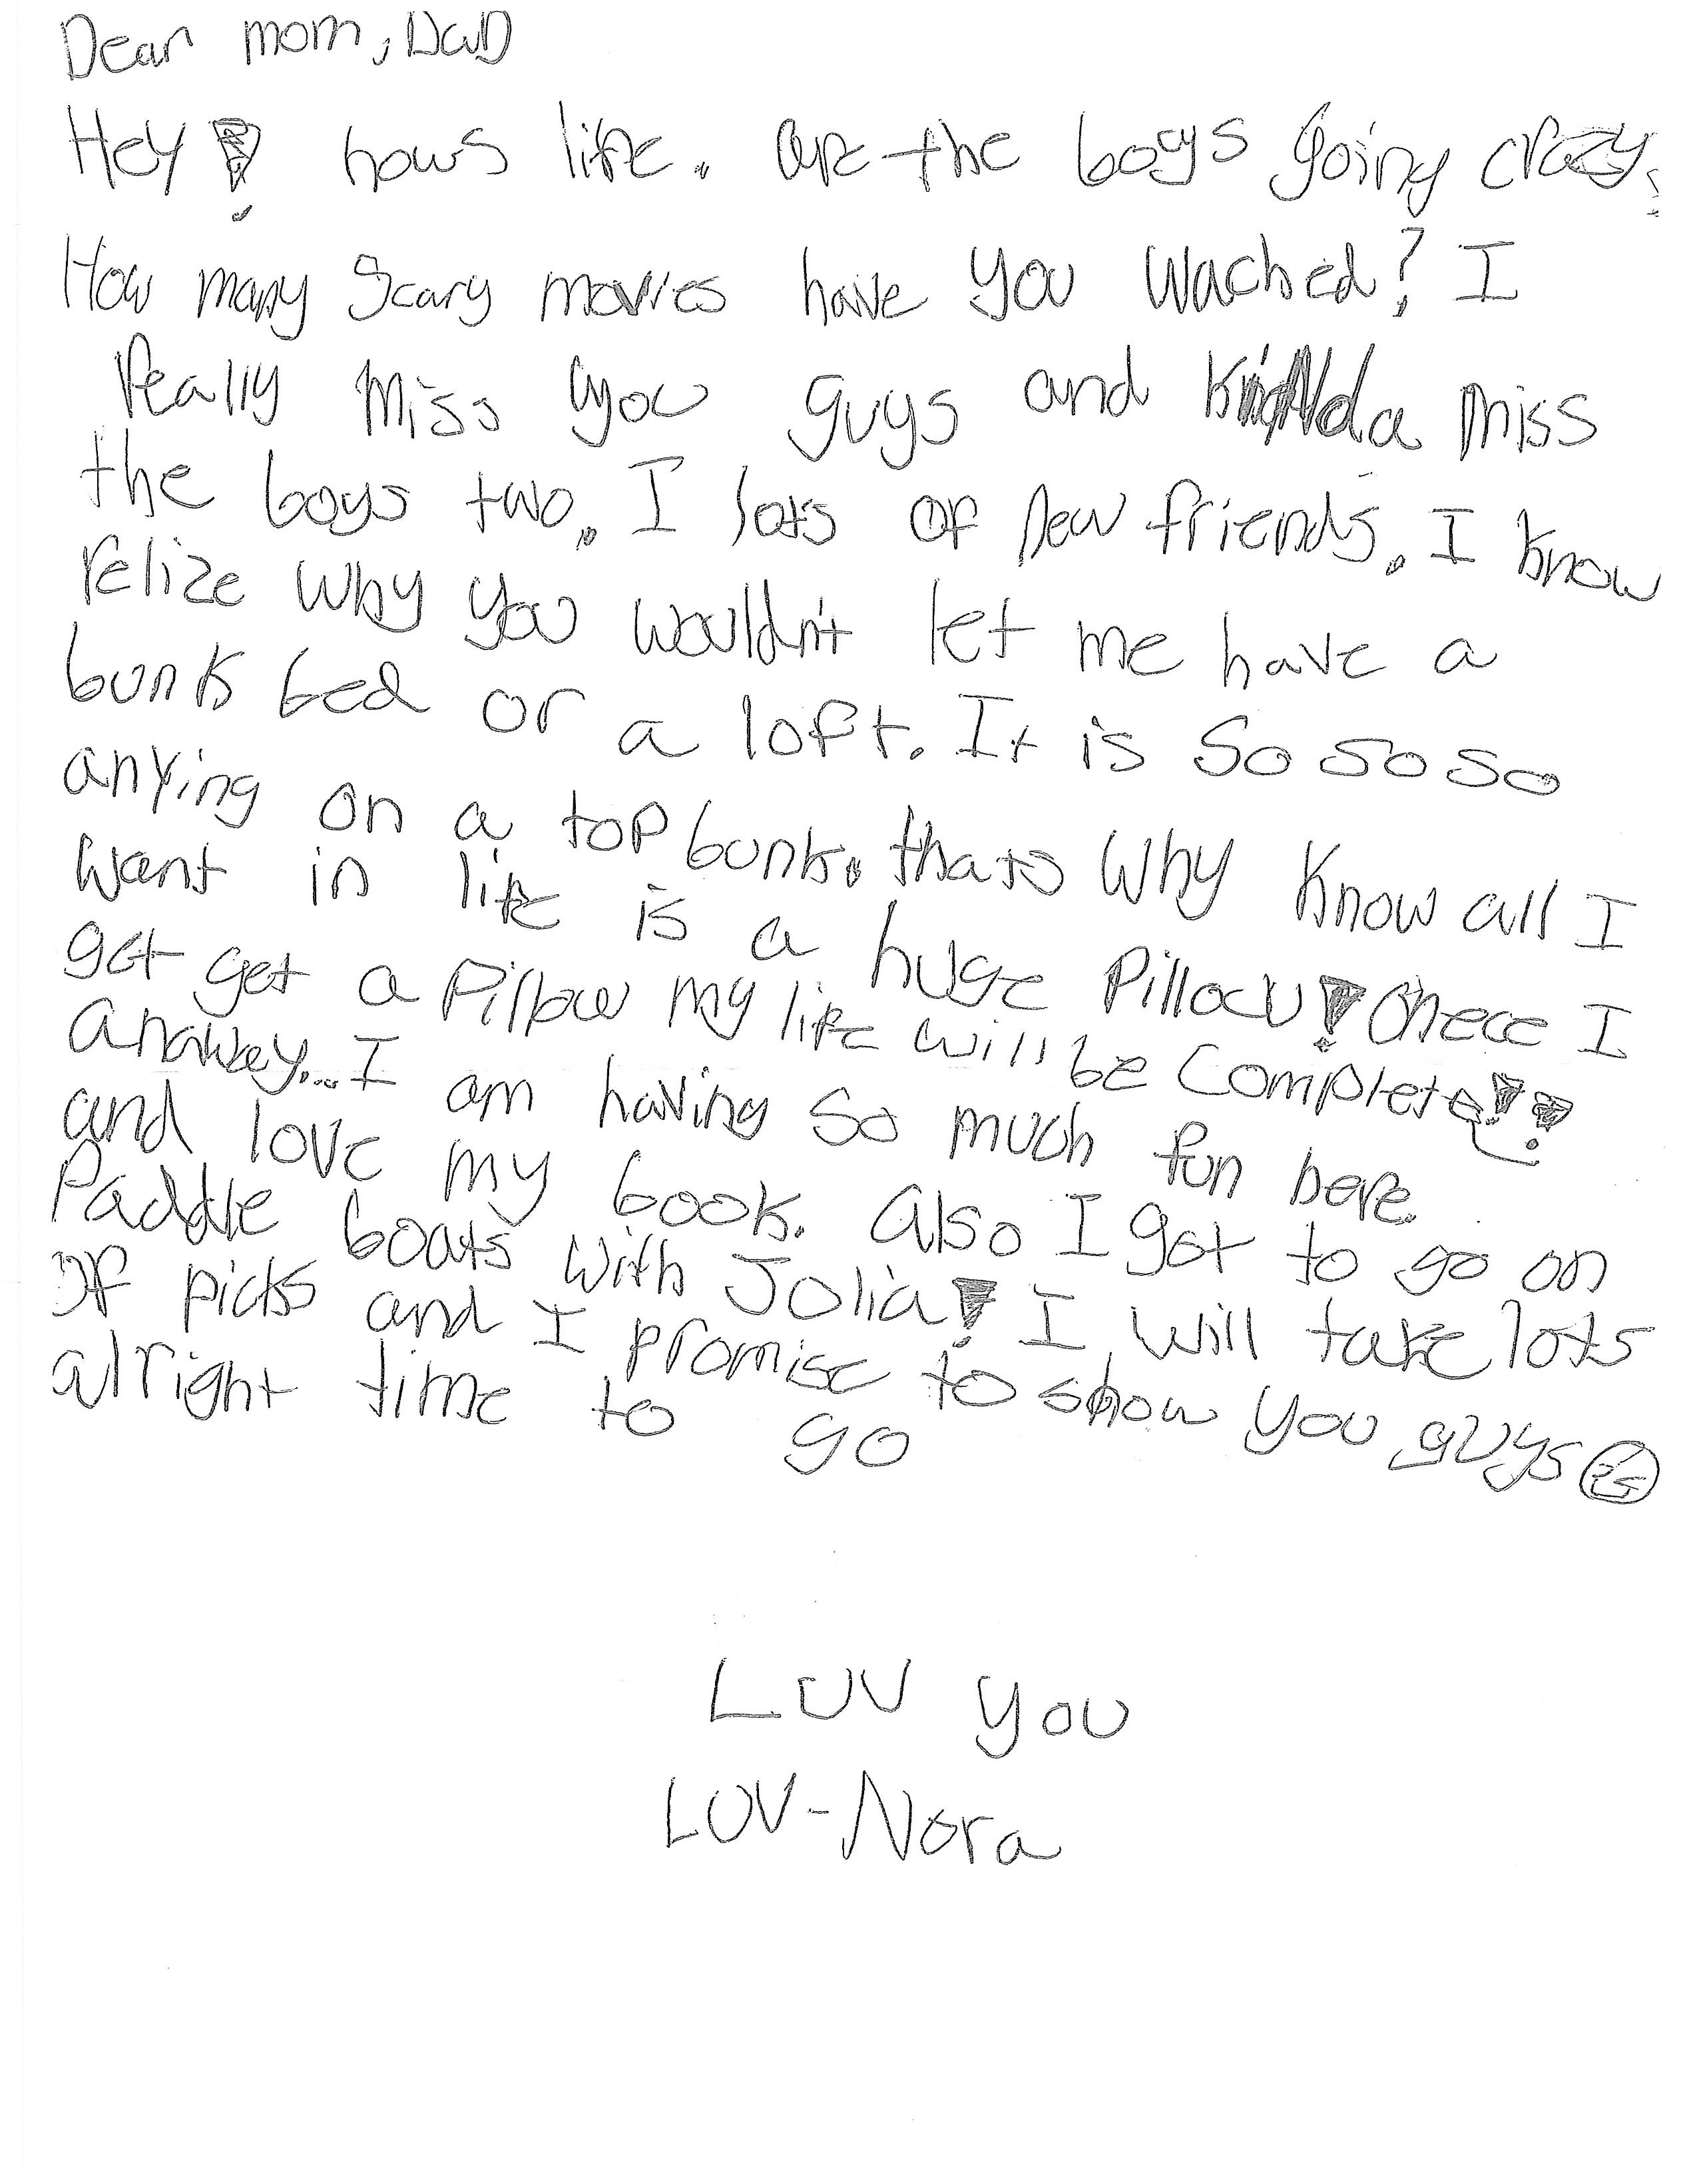 Dear mom, DaD
Hey! hows life. are the boys going crazy.
How many Scary movies have you wached? I
Really miss you guys and kinda miss
the boys two. I lots of new friends. I know
relize why you wouldn't let me have a
bunk bed or a loft. It is so so so
anying on a top bunk. thats why know all I
want in life is a huge pillow! Onece I
get get a pillow my life will be complete!!
anaway... I am having so much fun here.
and love my book. also I got to go on
paddle boats with Jolia! I will take lots
of picks and I promise to show you guys
alright time to go
LUV you
LUV-Nora